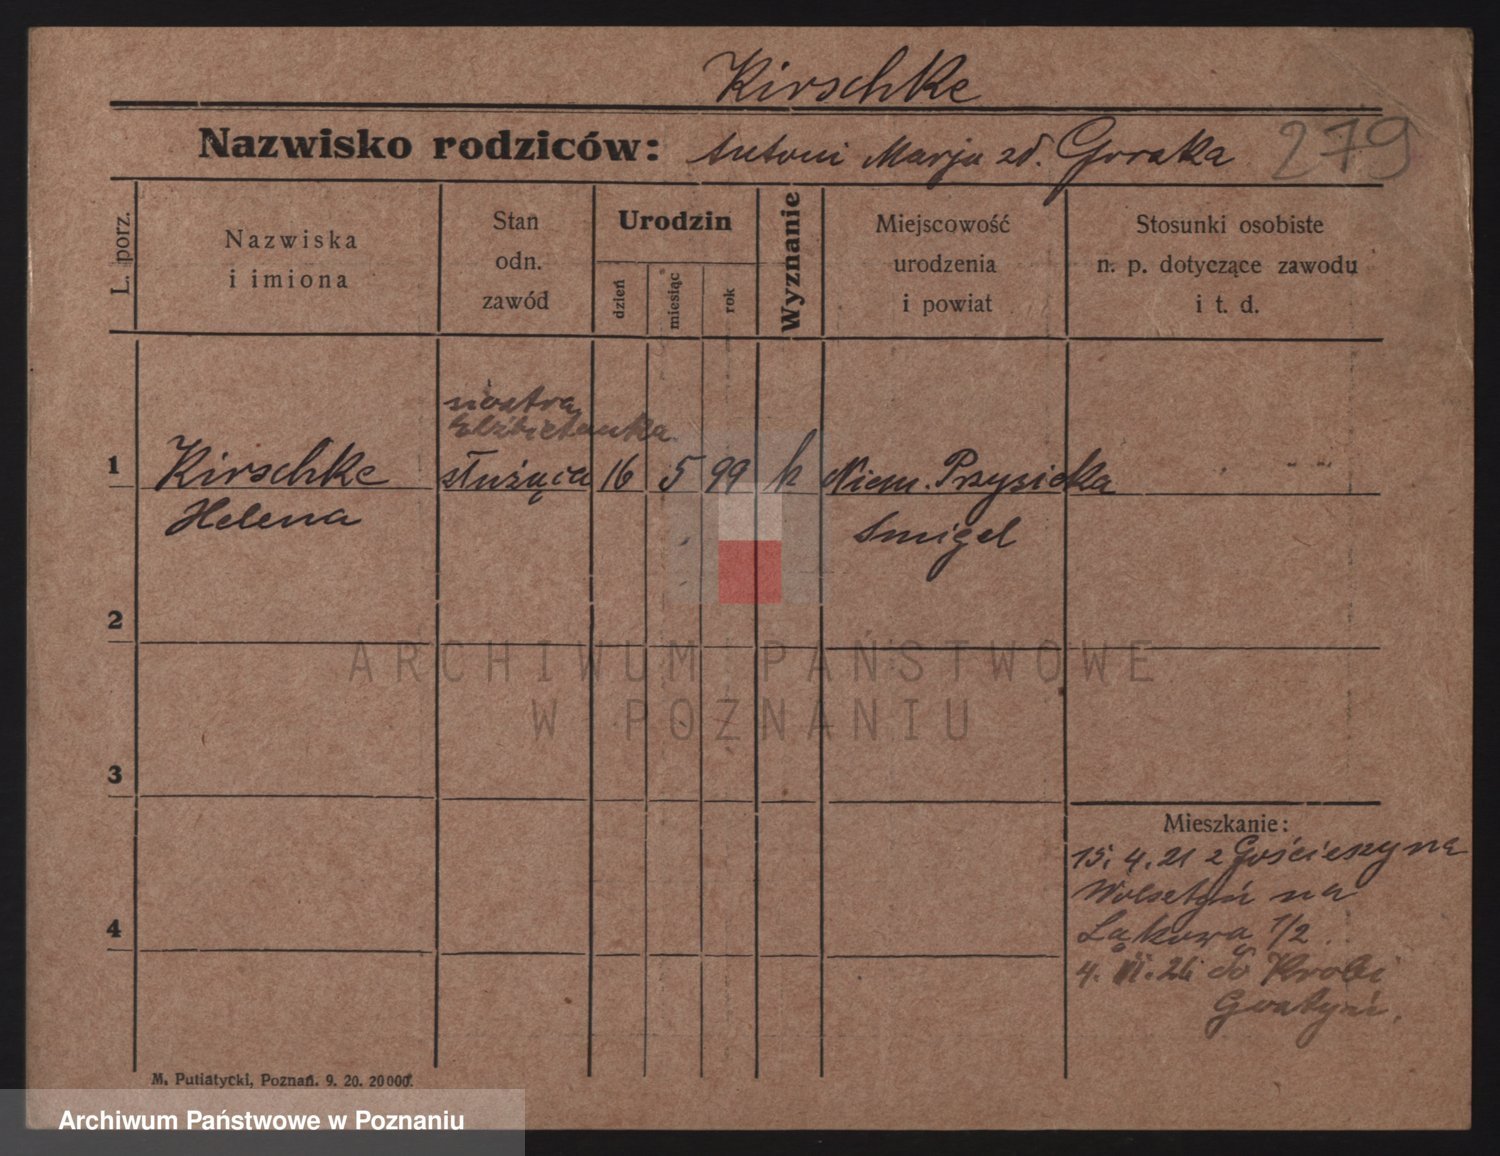 Kirschke
Nazwisko rodziców: Antoni Marja zd. Gorska
279
L. porz.
Nazwiska
i imiona
Stan
odn.
zawód
Urodzin
dzień
miesiąc
rok
Wyznanie
Miejscowość
urodzenia
i powiat
Stosunki osobiste
n. p. dotyczące zawodu
i t. d.
siostra
Elżbietanka
1 Kirschke służąca 16 5 99 k Niem. Przysieka
Helena Smigel
2
3
4
Mieszkanie:
15. 4. 21 z Gościeszyna
Wolsztyń na
Łąkową 1/2
4. 11. 26 do Krobi
Gostyń.
M. Putiatycki, Poznań. 9. 20. 20000.
ARCHIWUM PAŃSTWOWE
W POZNANIU
Archiwum Państwowe w Poznaniu